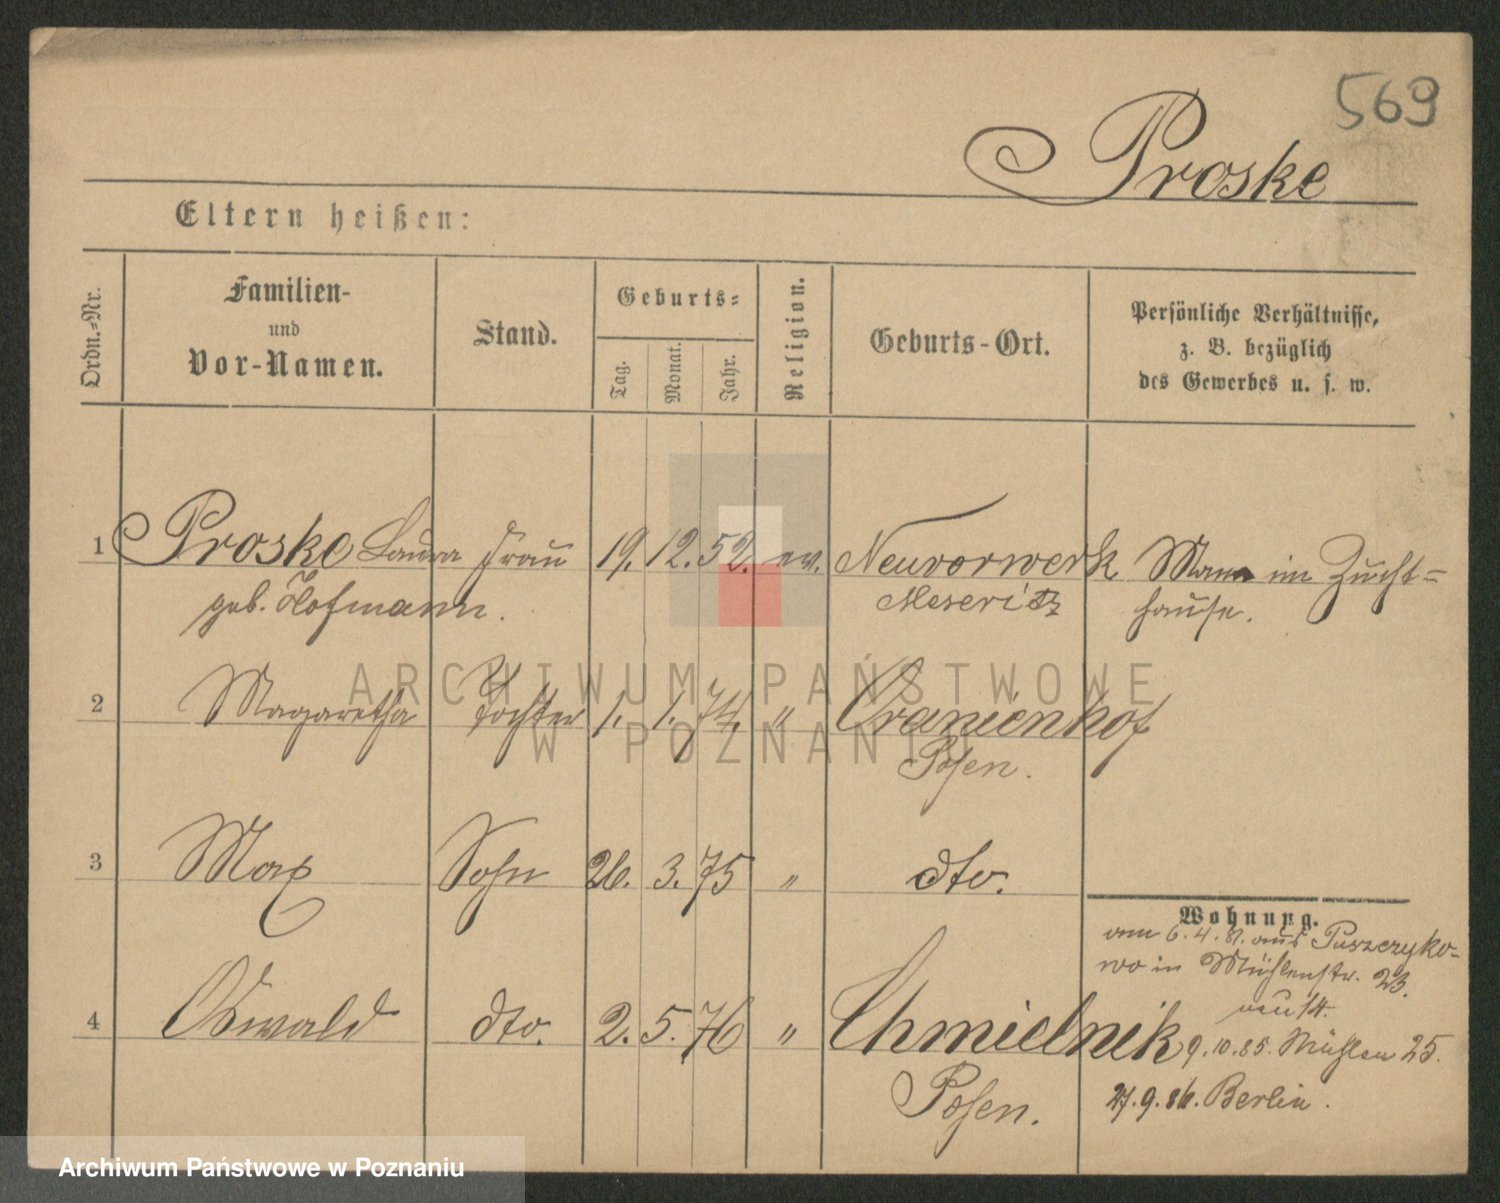 569
Proske
Eltern heißen:
Ordn.-Nr.
Familien-
und
Vor-Namen.
Stand.
Geburts-
Tag.
Monat.
Jahr.
Religion.
Geburts-Ort.
Persönliche Verhältnisse,
z. B. bezüglich
des Gewerbes u. s. w.
1 Proske Laura Frau 19. 12. 52. ev. Neuvorwerk Mann im Zucht-
geb. Hofmann. Meseritz hause.
2 Magaretha Tochter 1. 1. 74. " Oranienhof
Posen.
3 Max Sohn 26. 3. 75 " dto.
Wohnung.
am 6. 4. 81. aus Puszczyko-
wo in Mühlenstr. 23.
neu 14.
4 Oswald dto. 2. 5. 76 " Chmielnik 9. 10. 85. Mühlen 25.
Posen. 27. 9. 86. Berlin.
ARCHIWUM PAŃSTWOWE
W POZNANIU
Archiwum Państwowe w Poznaniu